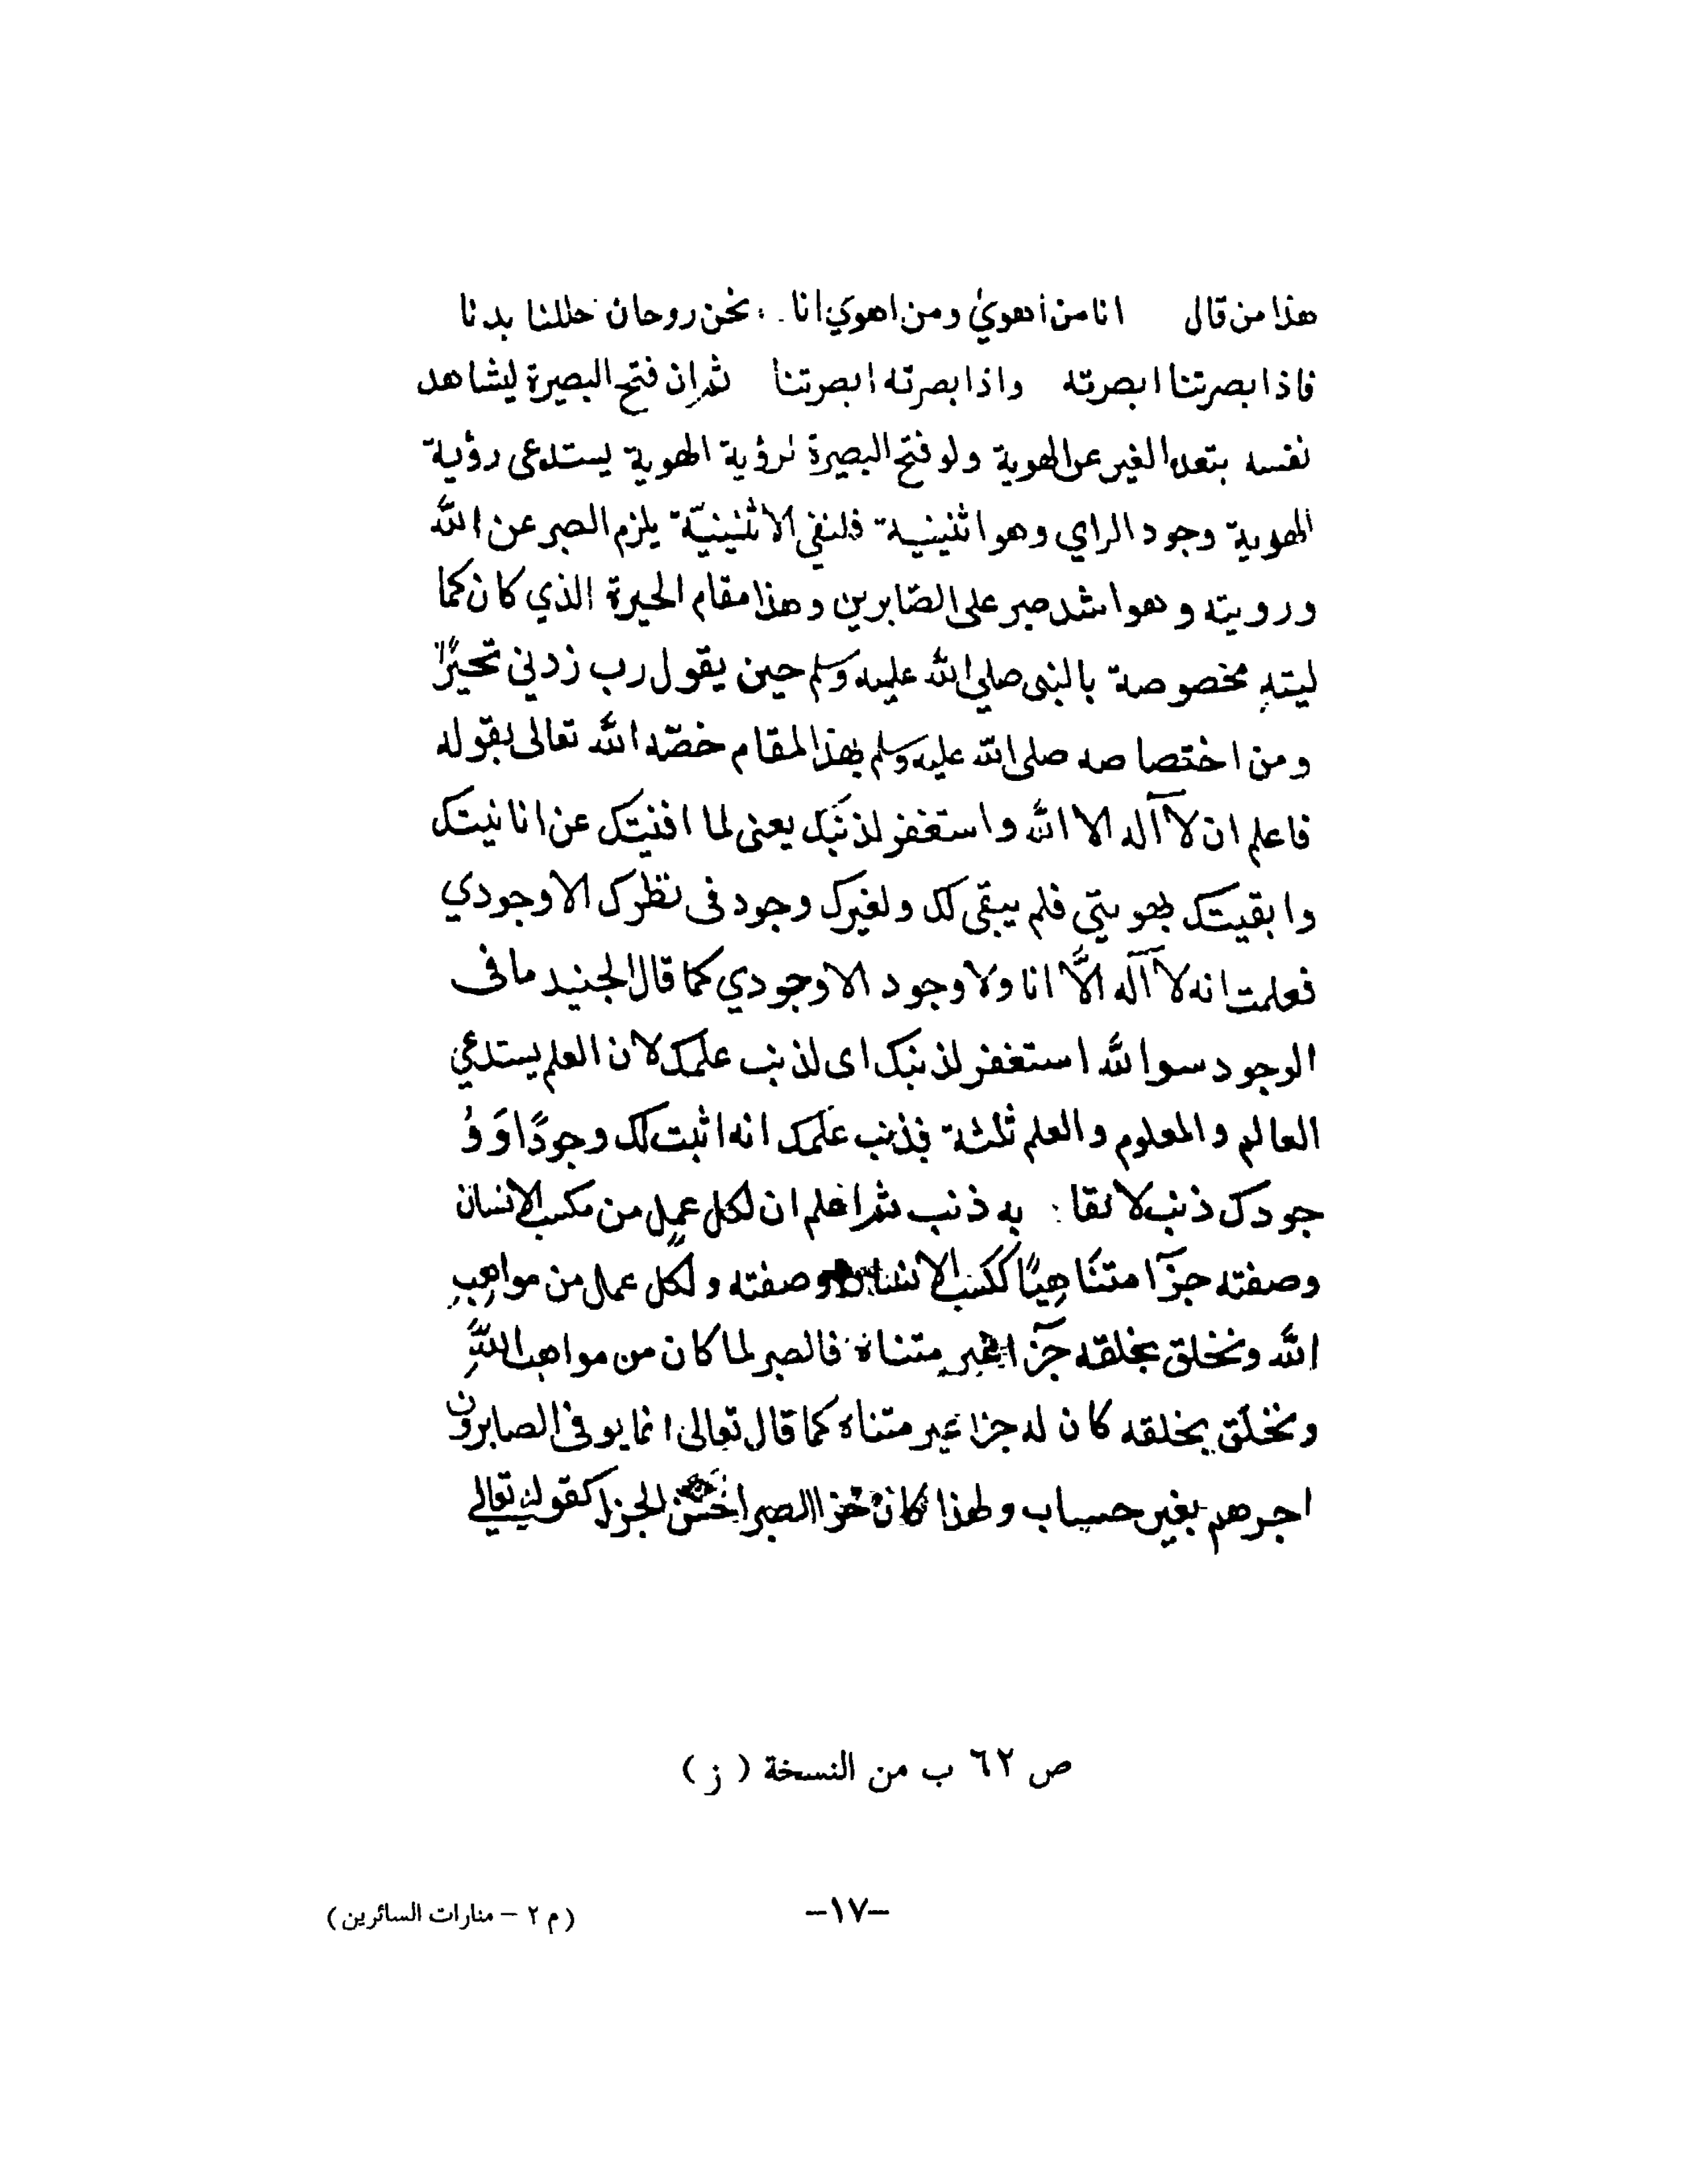 هذا من قال انا من أهوي ومن اهوي انا . نحن روحان حللنا بدنا
فاذا بصرتنا ابصرته واذا بصرته ابصرتنا ثم إن فتح البصيرة ليشاهد
نفسه بتعد الغير عن الهوية ولو فتح البصيرة لرؤية الهوية يستدعى رؤية
الهوية وجود الراي وهو اثنينية فلنفي الاثنينيّة يلزم الصبر عن الله
ورويته وهو اشد صبر على الصّابرين وهذا مقام الحيرة الذي كان كما
ليته مخصوصة بالنبى صلي الله عليه وسلم حين يقول رب زدني تحيرًا
ومن اختصاصه صلى الله عليه وسلم بهذا المقام خصّه الله تعالى بقوله
فاعلم ان لآ آله الا الله واستغفر لذنبك يعنى لما افنيتك عن انانيتك
وابقيتك بهويتي فلم يبقى لك ولغيرك وجود فى نظرك الا وجودي
فعلمت انه لآ آله الاَّ انا ولا وجود الا وجودي كما قال الجنيد ما فى
الوجود سوا لله استغفر لذنبك اى لذنب علمك لان العلم يستدعي
العالم والمعلوم والعلم ثلثة فذنب علمك انه اثبت لك وجودًا وَ وُ
جودك ذنب لا يقا : به ذنب ثم اعلم ان لكل عمل من مكسب الانسان
وصفته جزآ متنَاهيًا ككسب الانسان وصفته ولكل عمل من مواهب
الله وتخلق بخلقه جزآ غير متناه فالصبر لما كان من مواهب الله
وتخلّق بخلقه كان له جزا غير متناه كما قال تعالى انما يوفى الصابرون
اجرهم بغير حساب ولهذا كان جزا الصبر احسن الجزا كقوله تعالى
ص ٦٢ ب من النسخة ( ز )
–١٧–
( م ٢ – منارات السائرين )